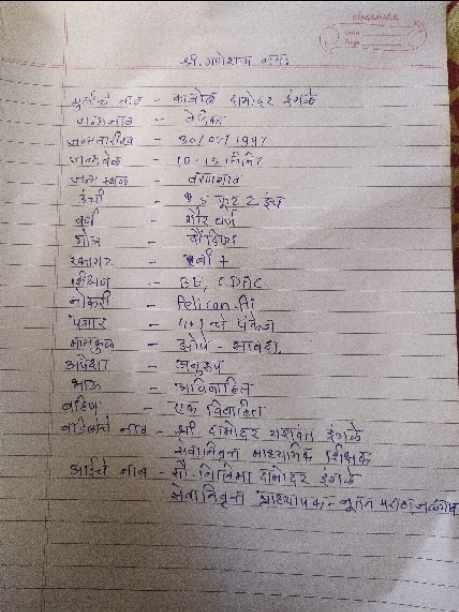 classmate
Date
Page
श्री. गणेशाय नमः
मुलीचे नाव - काजोल दामोदर इंगळे
जन्मनाव -
जन्मतारीख - 30/07/1997
जन्मवेळ - 10.15 मिनिट
जन्म स्थळ - वरणगाव
उंची - 5 फूट 2 इंच
वर्ण - गौर वर्ण
गोत्र - कौंडिण्य
रक्तगट - बी +
शिक्षण - BE, CDAC
नोकरी - Pelican.Ai
पगार - चे पॅकेज
मामकुळ - झोपे - सावदा
अपेक्षा - अनुरूप
भाऊ - अविवाहित
बहिण - एक विवाहित
वडिलांचे नाव - श्री दामोदर यशवंत इंगळे
सेवानिवृत्त माध्यमिक शिक्षक
आईचे नाव - सौ. लिलिमा दामोदर इंगळे
सेवानिवृत्त प्राध्यापक - नूतन मराठा, जळगाव